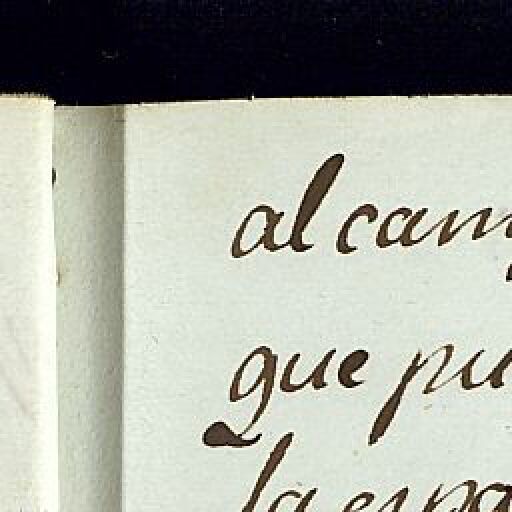 al cam
que pu
la espa